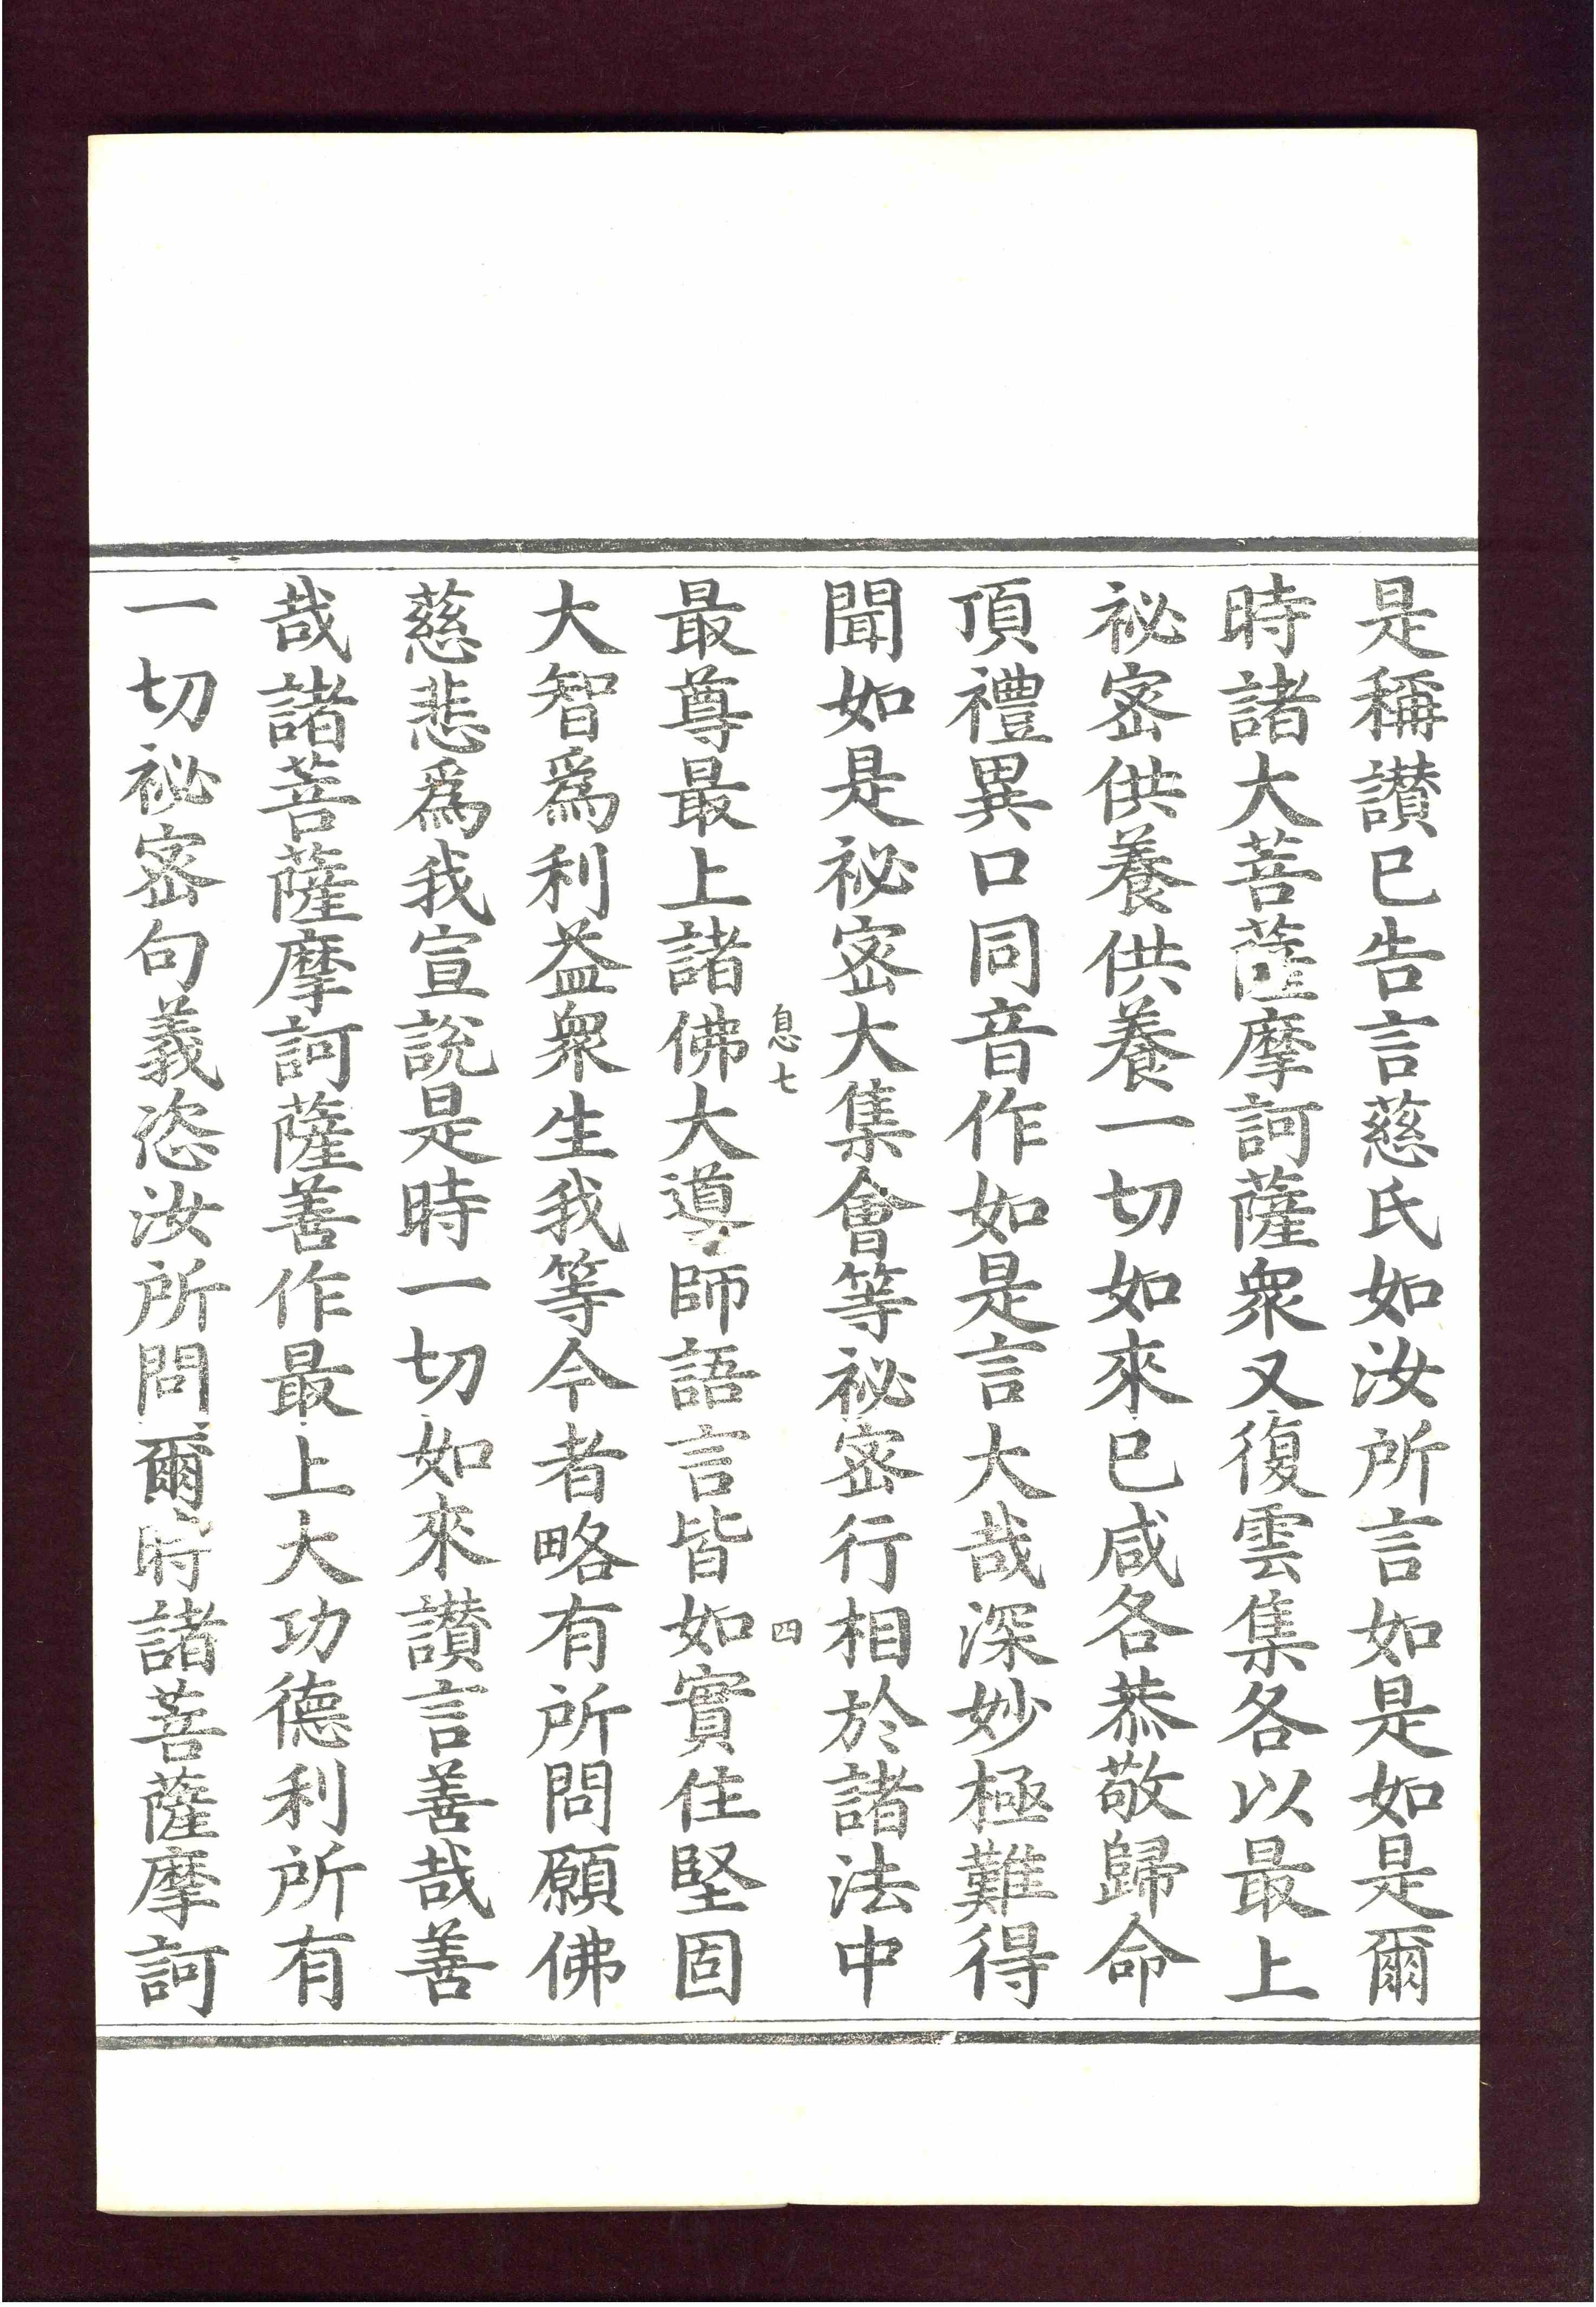 是稱讃已告言慈氏如汝所言如是如是爾
時諸大菩薩摩訶薩衆又復雲集各以最上
祕密供養供養一切如來已咸各恭敬歸命
頂禮異口同音作如是言大哉深妙極難得
聞如是祕密大集會等祕密行相於諸法中
息七 四
最尊最上諸佛大導師語言皆如實住堅固
大智爲利益衆生我等今者略有所問願佛
慈悲爲我宣說是時一切如來讃言善哉善
哉諸菩薩摩訶薩善作最上大功德利所有
一切祕密句義恣汝所問爾時諸菩薩摩訶